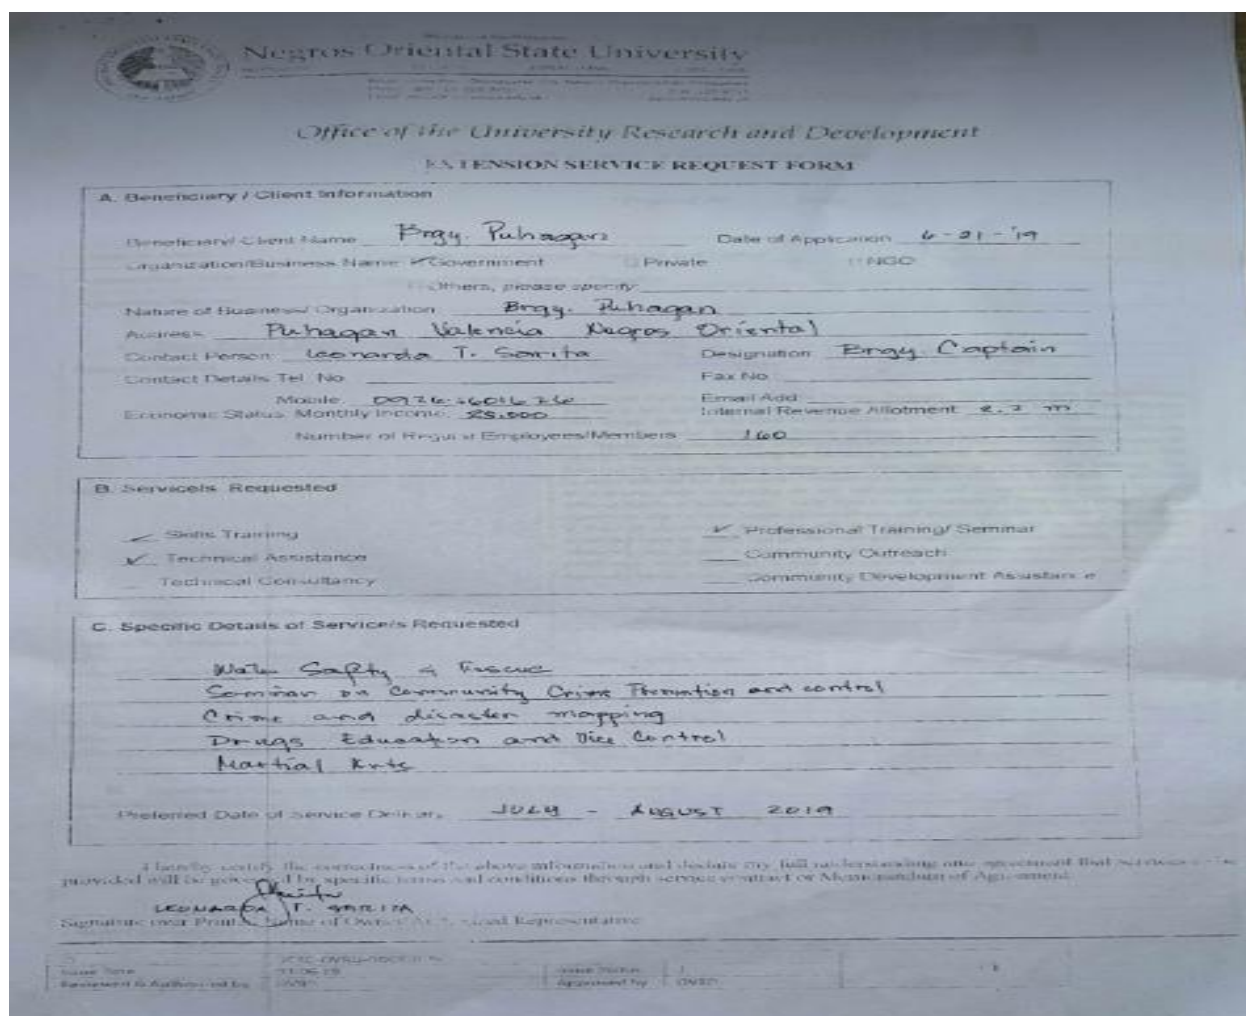 Negros Oriental State University
Office of the University Research and Development
EXTENSION SERVICE REQUEST FORM
A. Beneficiary / Client Information
Beneficiary/ Client Name Brgy. Puhagan Date of Application 6-21-'19
Organization/Business Name ✓Government Private NGO
Others, please specify
Nature of Business/ Organization Brgy. Puhagan
Address Puhagan Valencia Negros Oriental
Contact Person Leonarda T. Sarita Designation Brgy Captain
Contact Details Tel. No. Fax No.
Mobile Email Add
Economic Status: Monthly Income: 25,000 Internal Revenue Allotment 2.2 m
Number of Regular Employees/Members 160
B. Service/s Requested
✓ Skills Training ✓ Professional Training/ Seminar
✓ Technical Assistance Community Outreach
Technical Consultancy Community Development Assistance
C. Specific Details of Service/s Requested
Water Safty & Rescue
Seminar on Community Crime Prevention and control
Crime and disaster mapping
Drugs Education and Vice Control
Martial Arts
Preferred Date of Service Delivery JULY - AUGUST 2019
I hereby certify the correctness of the above information and declare my full understanding and agreement that services to be
provided will be governed by specific terms and conditions through service contract or Memorandum of Agreement.
LEONARDA T. SARITA
Signature over Printed Name of Owner/Authorized Representative
Issue Date
Reviewed & Authorized by Approved by